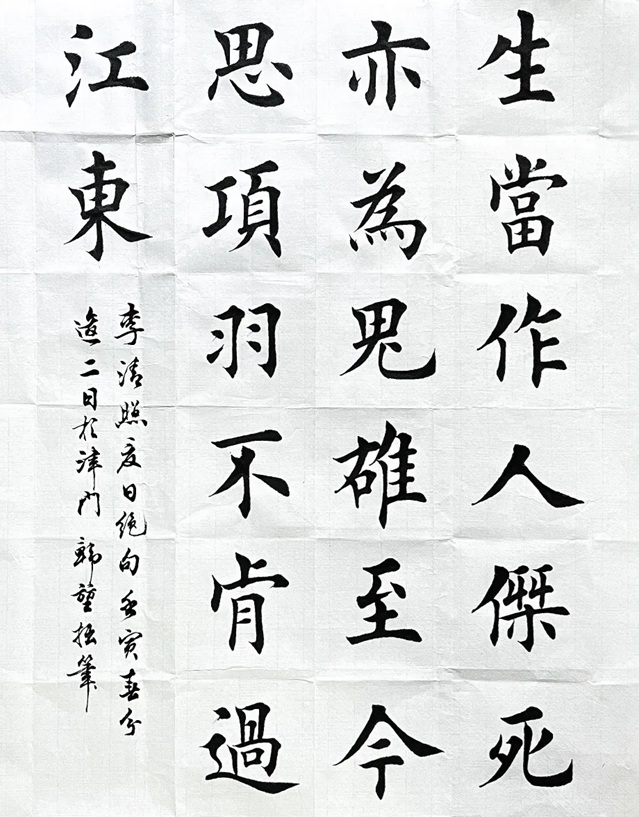 生當作人傑死
亦為鬼雄至今
思項羽不肯過
江東
李清照夏日绝句壬寅春分
後二日於津門 韓瑩拙筆